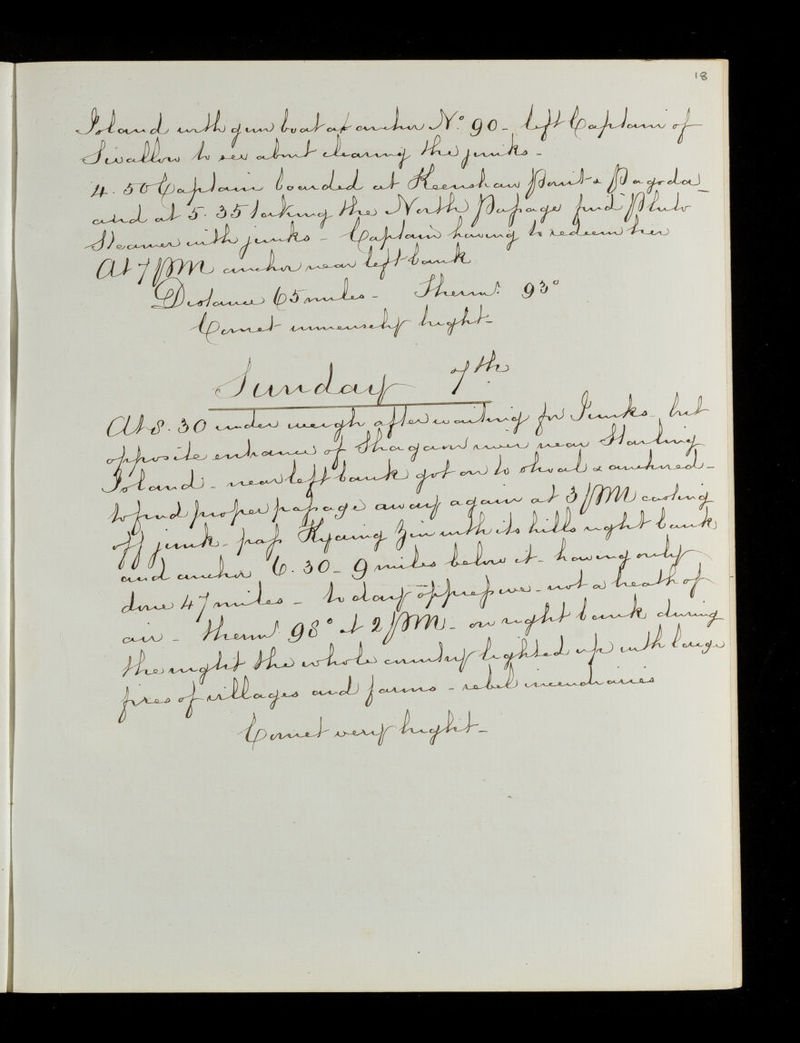 18
Island with gun boat at anchor No. 90 - left Captain of
Swallow to see about clearing the junks -
4.50 Captain boarded at Keenshaw Point & Pagoda -
and at 5.35 taking the North Passage find Pluto
Steamer with junks - Captain having to redeem her
At 7 PM anchor near left bank
Distance 65 miles - Thermr. 93°
Comet immensely bright -
Sunday 7th
At 8.30 under weigh after waiting for Junks - but
opposite entrance of river near Starling
Island - near left bank got on to shoal & anchored -
to find proper passage away again at 3 PM casting
off junk - pass Kyaing Yin with its hills right bank
and anchor 6.30 - 9 miles below it - having only
done 47 miles - to day oppressive - not a breath of
air - Thermr 98° at 2 PM - on right bank during
the night the whole country lighted up with large
fires of villages and farms - rebel incendiaries
Comet very bright -